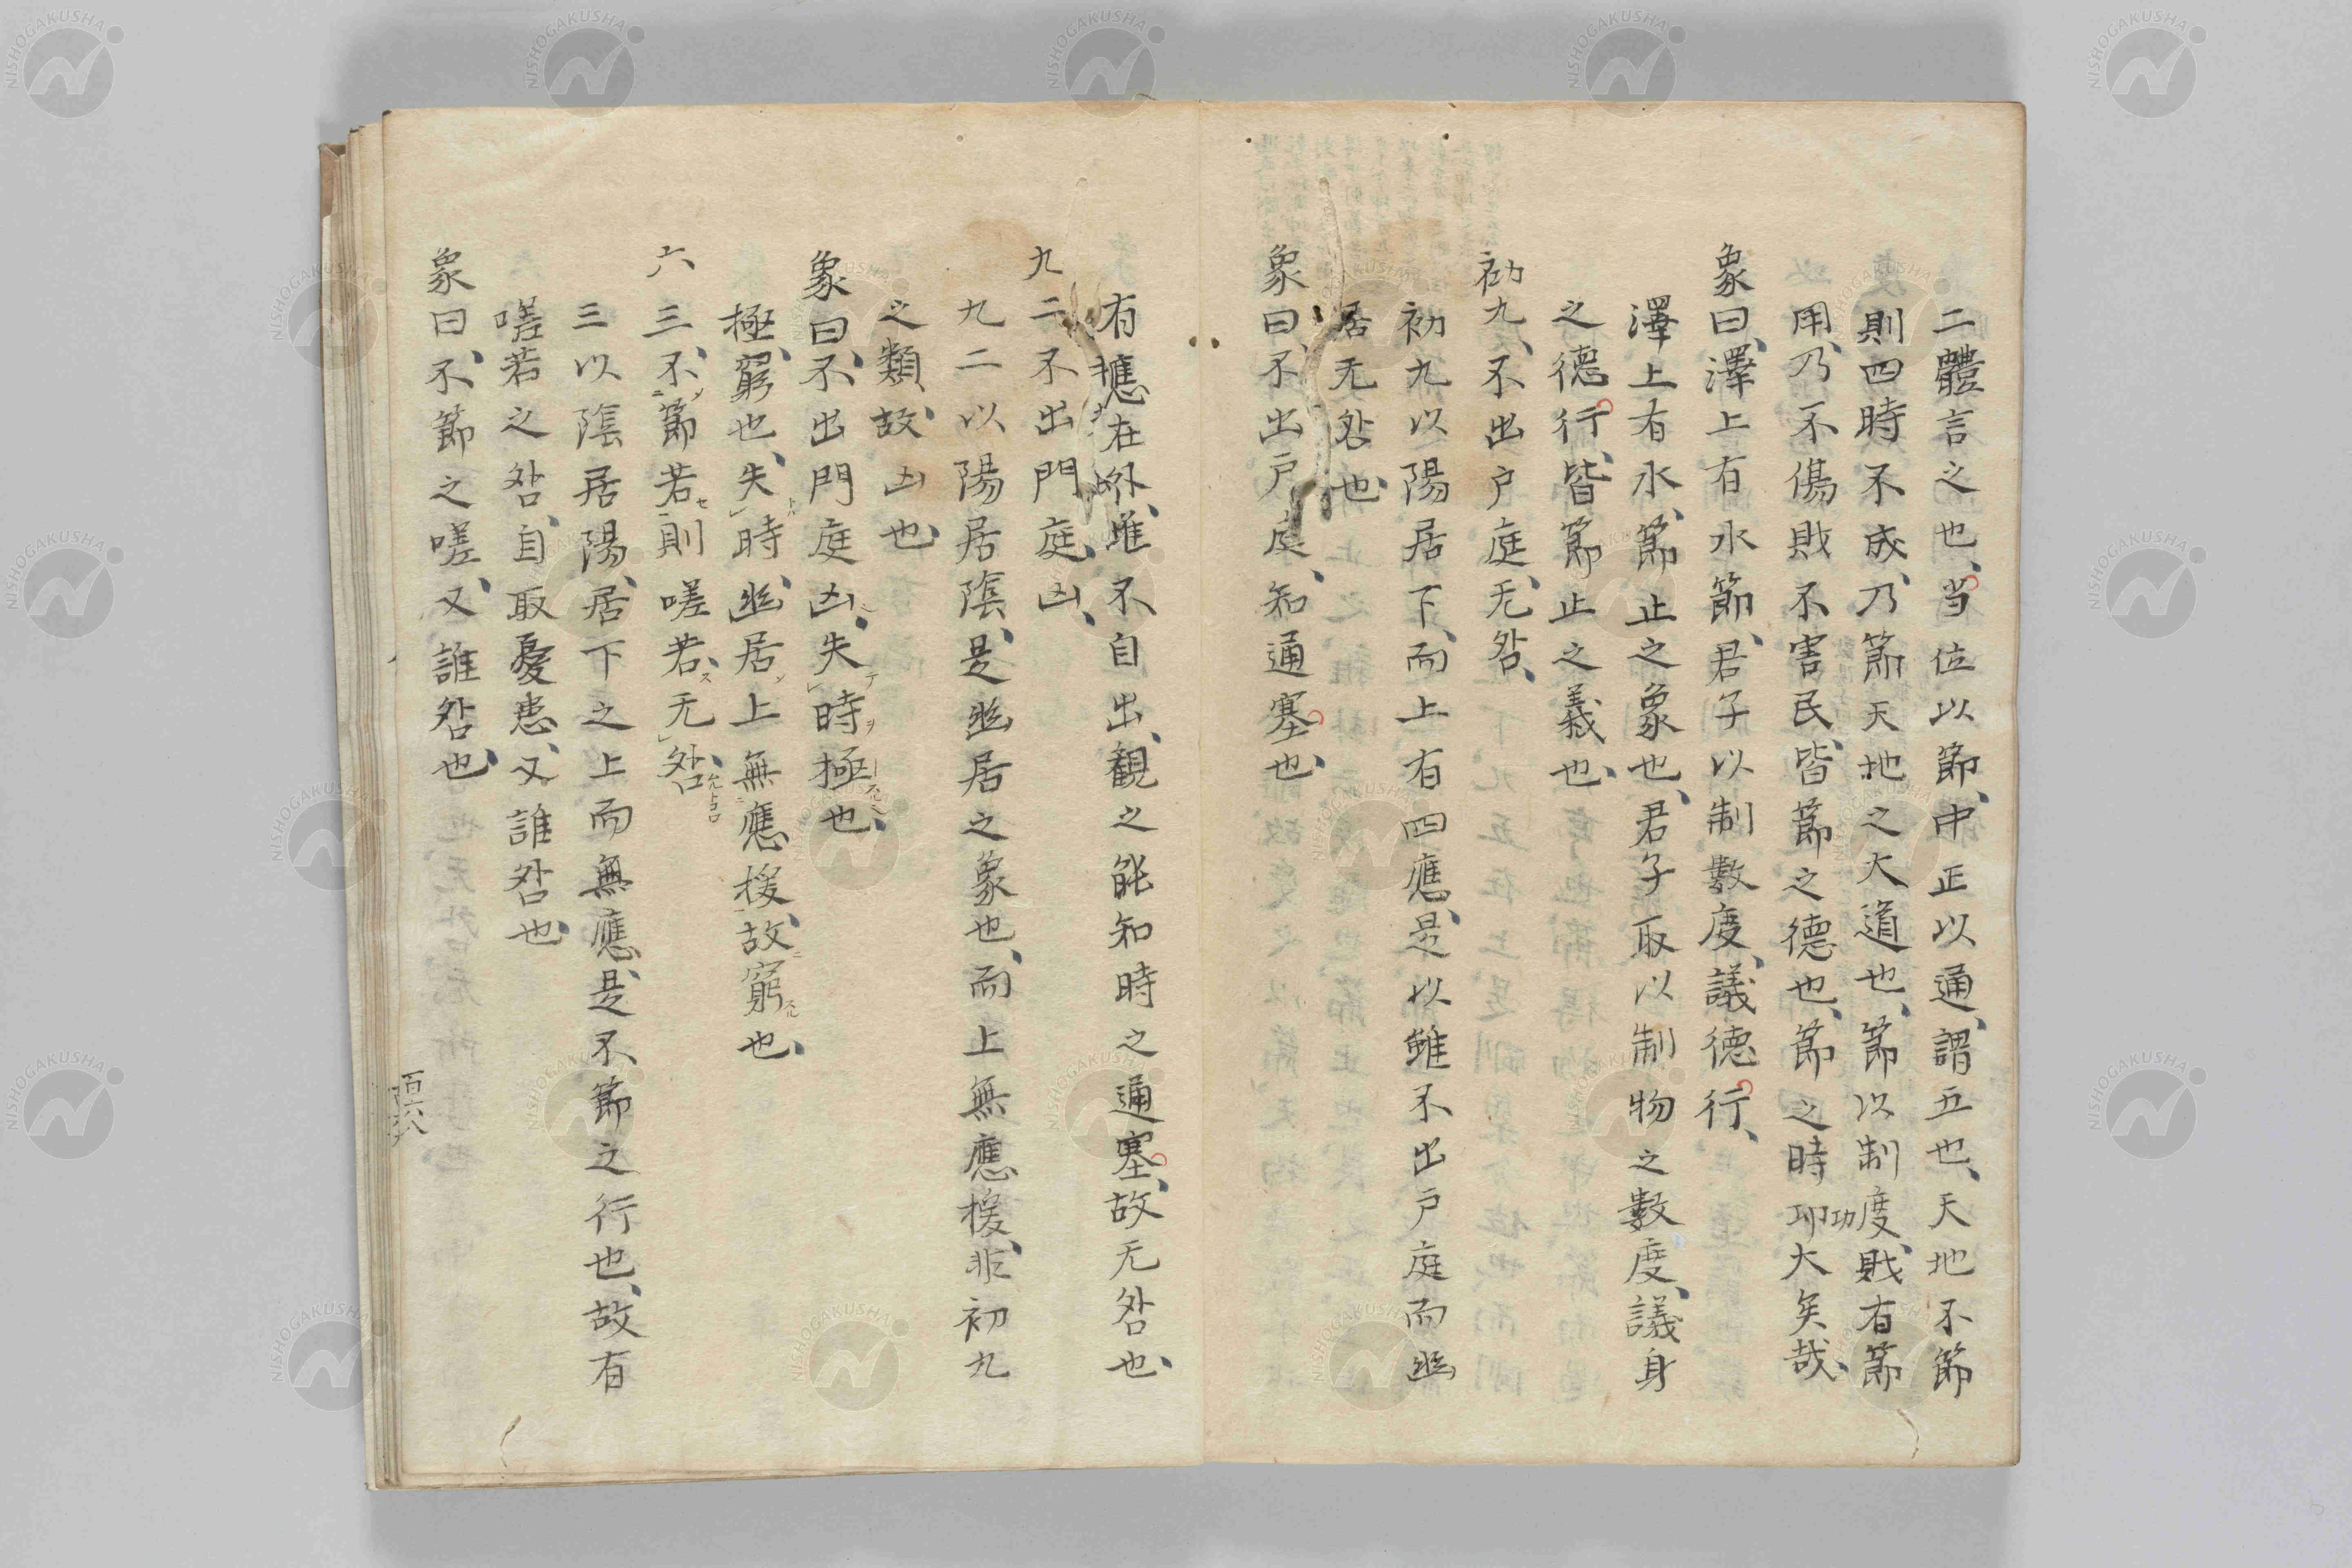 二體言之也、当位以節、中正以通、謂五也、天地不節
則四時不成、乃節天地之大道也、節以制度、財有節
用、乃不傷財不害民、皆節之德也、節之時功大矣哉、
功
象曰、澤上有水節、君子以制數度、議德行、
澤上有水、節止之象也、君子取以制物之數度、議身
之德行、皆節止之義也、
初九、不出戶庭、无咎、
初九以陽居下、而上有四應、是以雖不出戶庭而幽
居无咎也、
象曰、不出戶庭、知通塞也、
有應在外、雖不自出、観之能知時之通塞、故无咎也、
九二不出門庭、凶、
九二以陽居陰、是幽居之象也、而上無應援、非初九
之類、故凶也、
象曰、不出門庭凶、失時極也、
極、窮也、失時幽居上無應援、故窮也、
六三、不節若則嗟若、无咎
三以陰居陽、居下之上而無應、是不節之行也、故有
嗟若之咎、自取憂患、又誰咎也、
象曰、不節之嗟、又誰咎也、
百六八
NISHOGAKUSHA